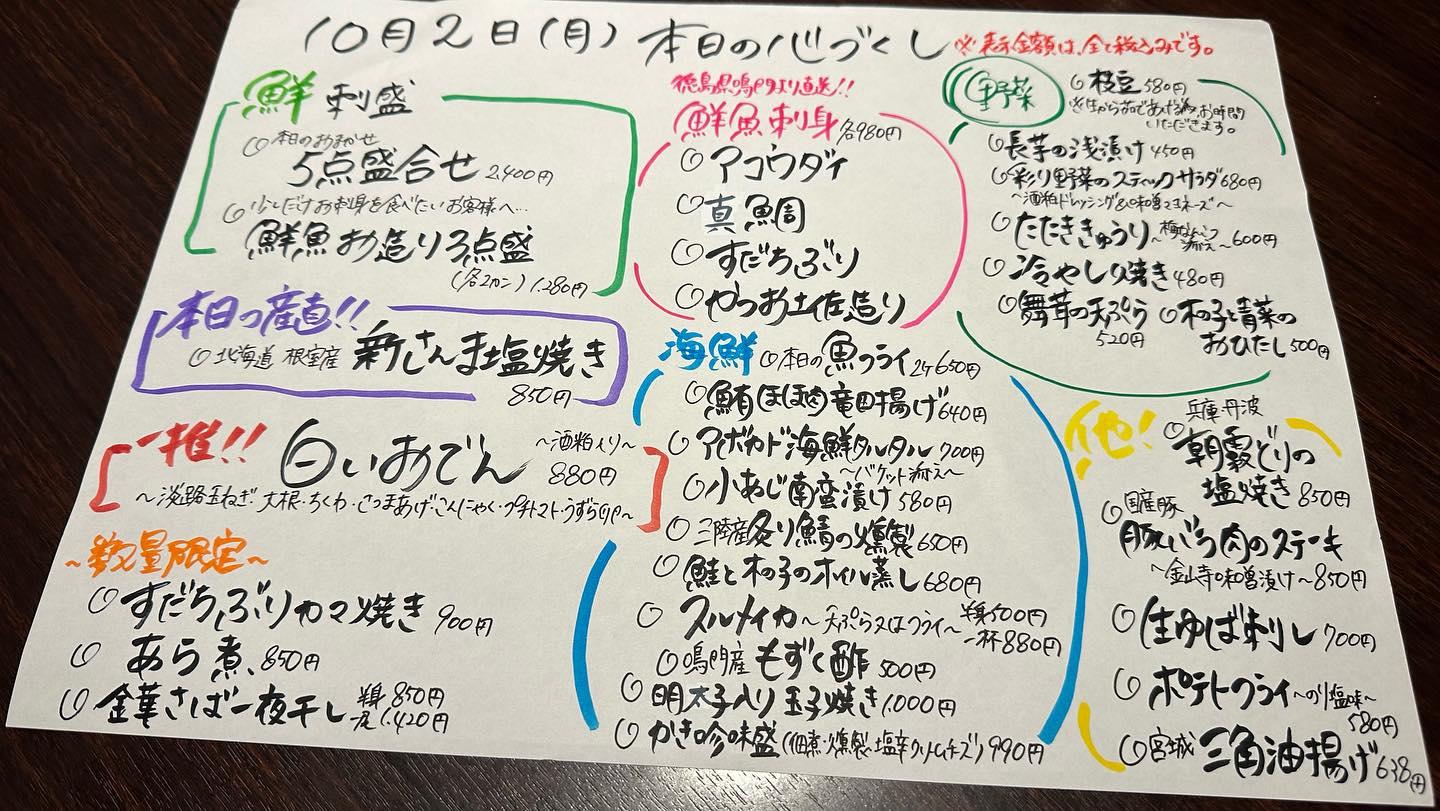 10月2日(月) 本日の心づくし
※表示金額は、全て税込みです。
鮮 刺盛
○本日のおまかせ
5点盛合せ 2,400円
○少しだけお刺身を食べたいお客様へ…
鮮魚お造り3点盛
(各2カン) 1,280円
本日の産直!!
○北海道 根室産 新さんま塩焼き
850円
一推!! 白いおでん ～酒粕入り～
880円
～淡路玉ねぎ・大根・ちくわ・さつまあげ・こんにゃく・プチトマト・うずらの卵～
～数量限定～
○すだちぶりカマ焼き 900円
○あら煮 850円
○金華さば一夜干し 半身 850円
1,420円
徳島県鳴門より直送!!
鮮魚刺身 各980円
○アコウダイ
○真鯛
○すだちぶり
○かつお土佐造り
海鮮 ○本日の魚フライ 2ケ 650円
○鮪ほほ肉竜田揚げ 640円
○アボカド海鮮タルタル 700円
～バケット添え～
○小あじ南蛮漬け 580円
○三陸産炙り鯖の燻製 650円
○鮭と木の子のオイル蒸し 680円
○スルメイカ～天ぷら又はフライ～ 半身500円
一杯880円
○鳴門産もずく酢 500円
○明太子入り玉子焼き 1,000円
○かき珍味盛(佃煮・燻製・塩辛クリームチーズ) 990円
野菜 ○枝豆 580円
※生から茹であげる為、お時間
いただきます。
○長芋の浅漬け 450円
○彩り野菜のスティックサラダ 680円
～酒粕ドレッシング&味噌マヨネーズ～
○たたききゅうり～梅なんこつ
添え～ 600円
○冷やし焼き 480円
○舞茸の天ぷら
520円
○木の子と青菜の
おひたし 500円
他!
兵庫 丹波
○朝霧どりの
塩焼き 850円
○国産豚
豚いち肉のステーキ
～金山寺味噌漬け～ 850円
○生ゆば刺し 700円
○ポテトフライ～のり塩味～
580円
○宮城 三角油揚げ 638円